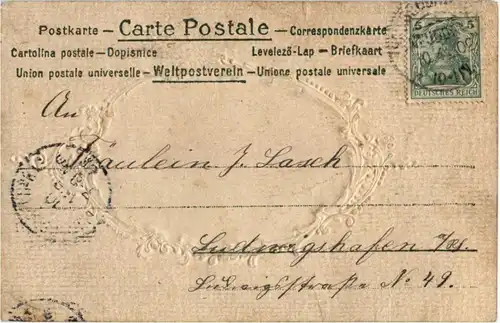 Postkarte – Carte Postale – Correspondenzkarte
Cartolina postale – Dopisnice Levelező-Lap – Briefkaart
Union postale universelle – Weltpostverein – Unione postale universale
5 5
DEUTSCHES REICH
10-11
An
Fräulein J. Lasch
Ludwigshafen a/Rh.
Ludwigsstraße No 49.